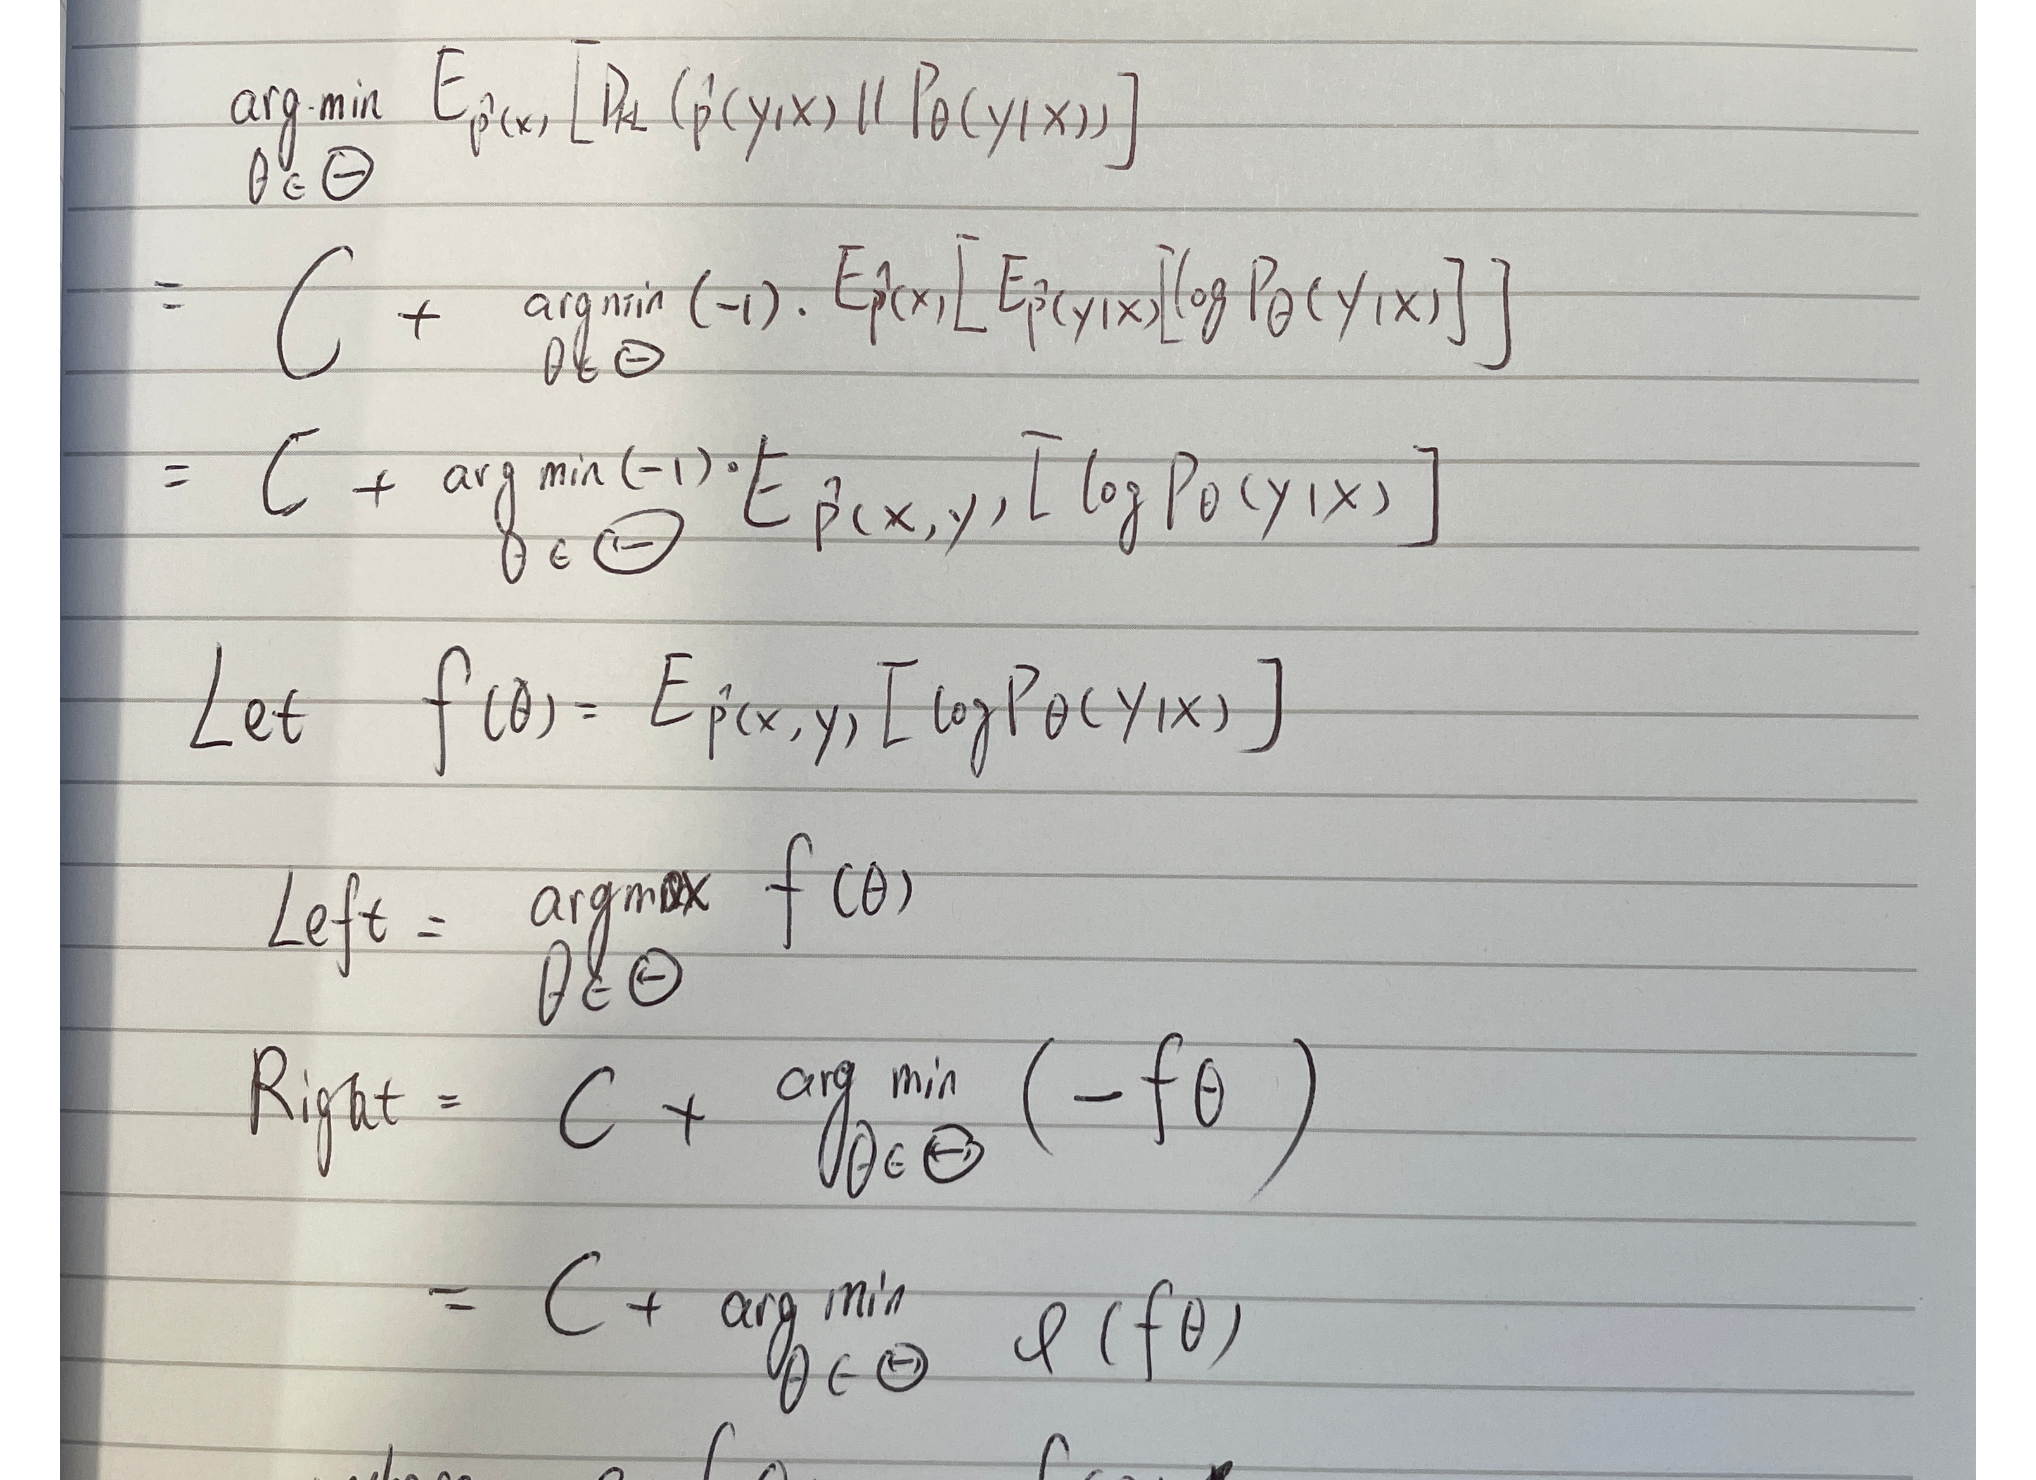 arg min θ∈Θ E_p̂(x) [D_KL (p̂(y|x) || P_θ(y|x))]
= C + argmin θ∈Θ (-1) · E_p̂(x) [E_p̂(y|x) [log P_θ(y|x)]]
= C + arg min θ∈Θ (-1) · E_p̂(x,y) [log P_θ(y|x)]
Let f(θ) = E_p̂(x,y) [log P_θ(y|x)]
Left = argmax θ∈Θ f(θ)
Right = C + arg min θ∈Θ (-fθ)
= C + arg min θ∈Θ φ(fθ)